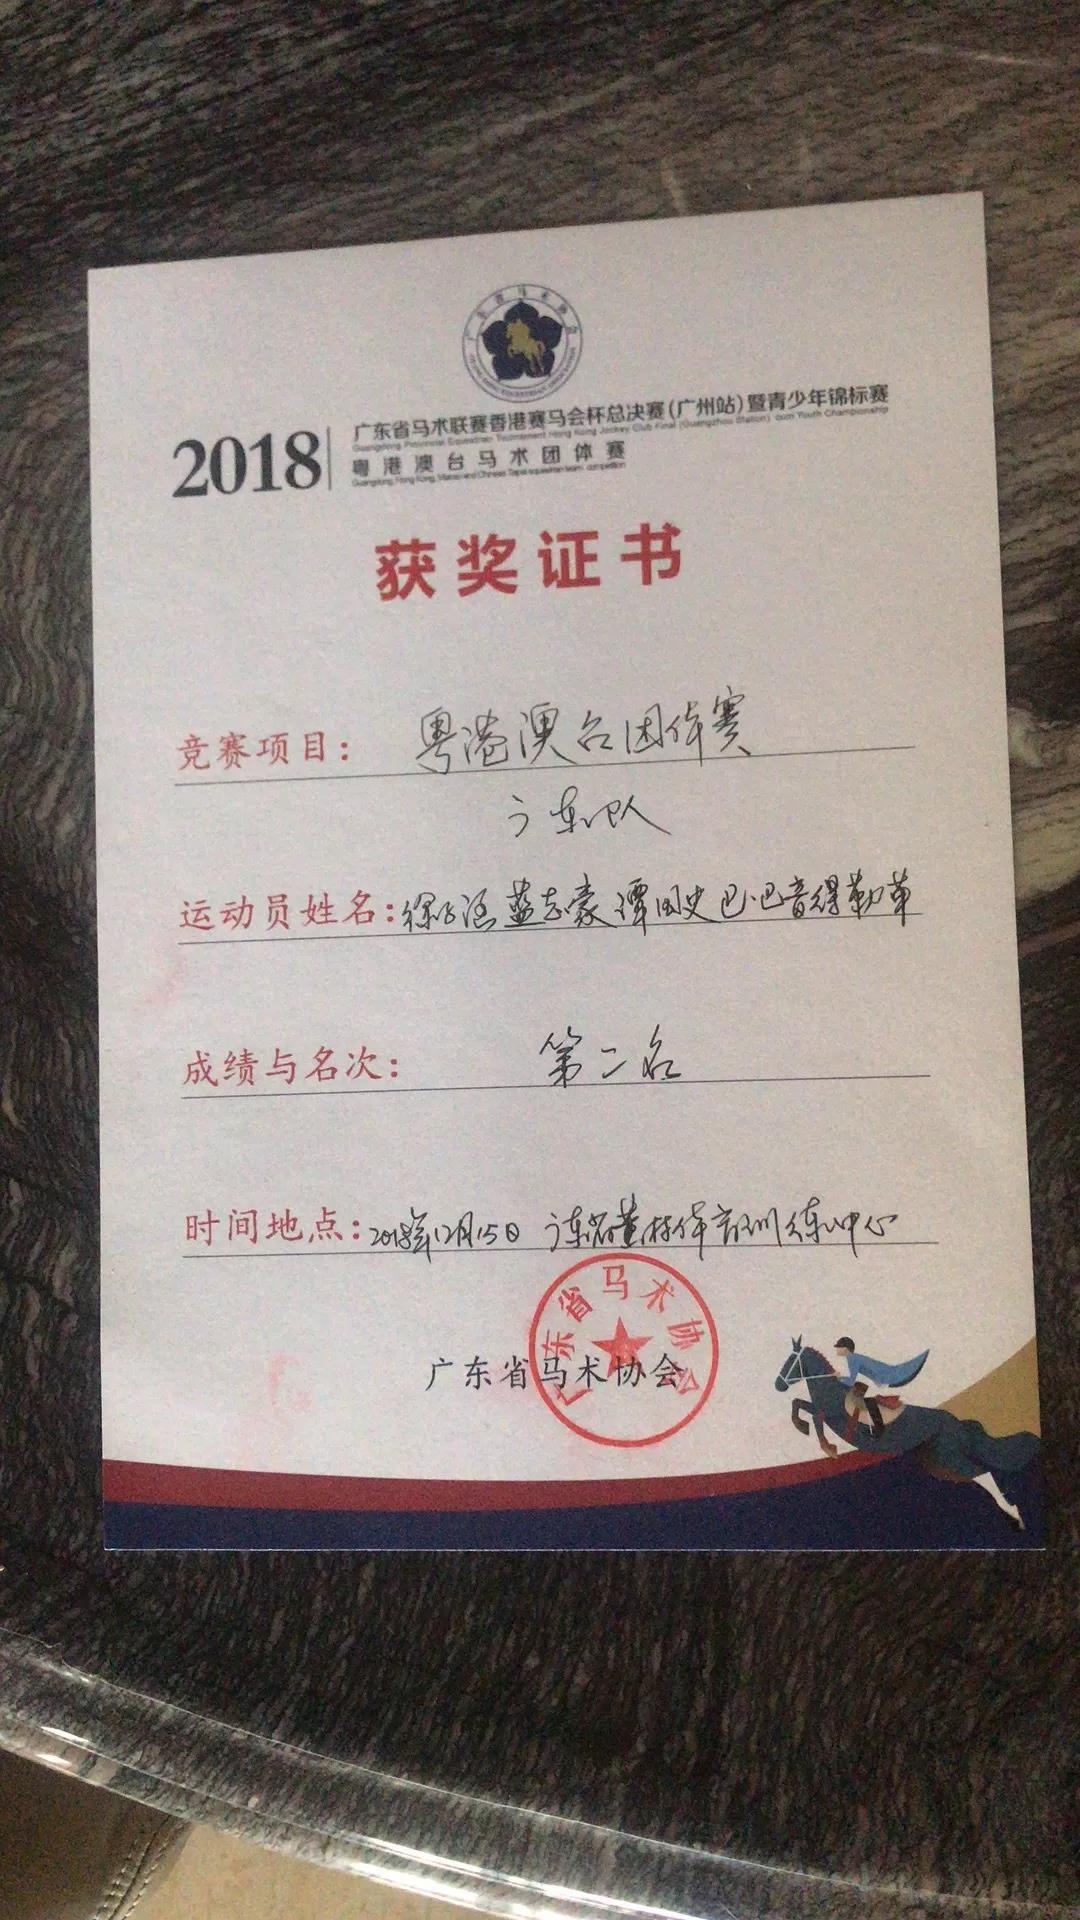 广东省马术协会
2018
广东省马术联赛香港赛马会杯总决赛(广州站)暨青少年锦标赛
Guangdong Provincial Equestrian Tournament Hong Kong Jockey Club Final (Guangzhou Station) cum Youth Championship
粤港澳台马术团体赛
Guangdong, Hong Kong, Macao and Chinese Taipei equestrian team competition
获奖证书
竞赛项目: 粤港澳台团体赛
广东队
运动员姓名: 蓝志豪 谭国史 巴·巴音得勒革
成绩与名次: 第二名
时间地点: 2018年12月15日 广东省黄村体育训练中心
广东省马术协会
广东省马术协会